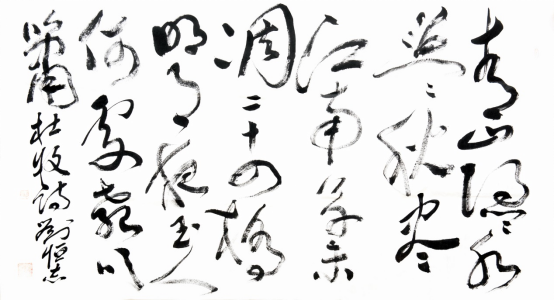 青山隱〻水
迢〻秋盡
江南草未
凋二十四橋
明月夜玉人
何處教吹
簫杜牧詩劉恒